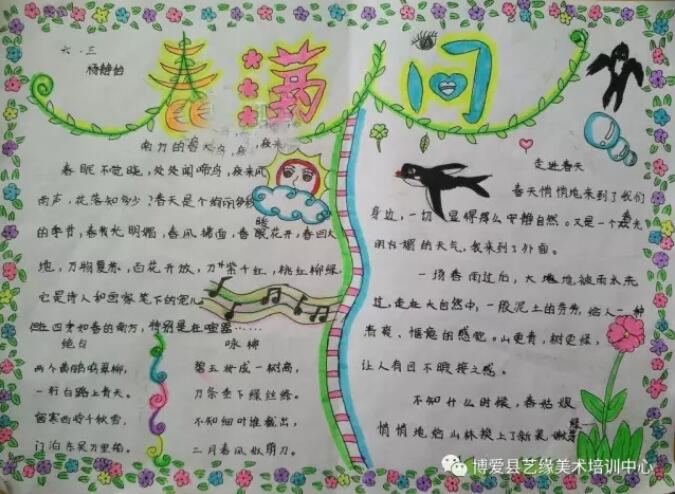 六.三
杨静怡
春满人间
南方的春天
春眠不觉晓，处处闻啼鸟，夜来风
雨声，花落知多少？春天是个
的季节，春光明媚，春风拂面，春暖花开，春回大
地，万物复苏，百花开放，万紫千红，桃红柳绿，
它是诗人和画家笔下的宠儿。
四季如春的南方，特别是在
绝句
两个黄鹂鸣翠柳，
一行白鹭上青天。
窗含西岭千秋雪，
门泊东吴万里船。
咏柳
碧玉妆成一树高，
万条垂下绿丝绦。
不知细叶谁裁出，
二月春风似剪刀。
走进春天
春天悄悄地来到了我们
身边，一切显得那么安静自然。又是一个
明媚的天气，我来到了外面。
一场春雨过后，大地被雨水洗
过，走在大自然中，一股泥土的芳香，给人一种
清爽、惬意的感觉。山更青，树更绿，
让人有目不暇接之感。
不知什么时候，春姑娘
悄悄地给山林换上了新装，嫩绿
博爱县艺缘美术培训中心